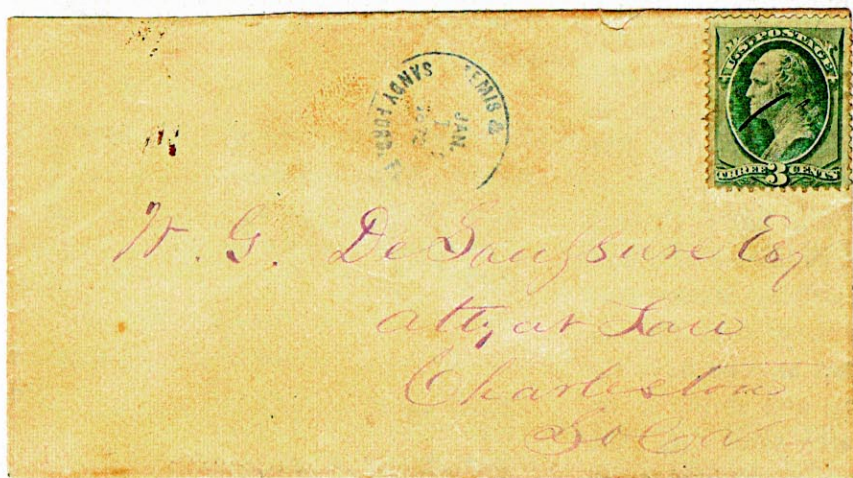 U.S. POSTAGE
THREE 3 CENTS
SANDY
JAN.
1
W. G. DeSaussure Esq
atty at Law
Charleston
So Ca